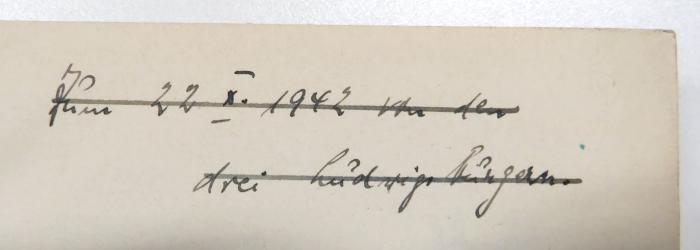 Zum 22 X. 1942 von den
drei Ludwigsbürgern.